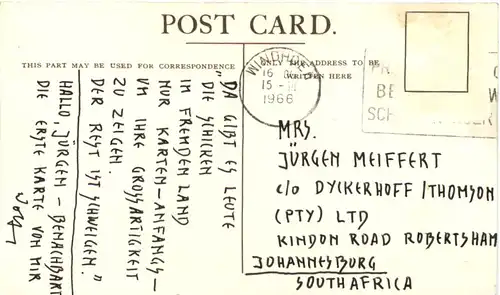 POST CARD.
THIS PART MAY BE USED FOR CORRESPONDENCE
ONLY THE ADDRESS TO BE
WRITTEN HERE
16
15
1966
HALLO, JÜRGEN – BENACHBART
DIE ERSTE KARTE VON MIR
„DA GIBT ES LEUTE
DIE SCHICKEN
IM FREMDEN LAND
NUR KARTEN-ANFANGS-
UM IHRE GROSSARTIGKEIT
ZU ZEIGEN.
DER REST IST SCHWEIGEN."
MRS.
JÜRGEN MEIFFERT
c/o DYCKERHOFF/THOMSON
(PTY) LTD
KINDON ROAD ROBERTSHAM
JOHANNESBURG
SOUTH AFRICA